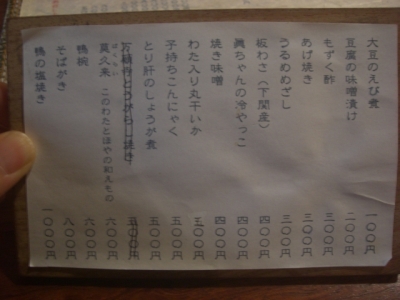 大豆のえび煮 一〇〇円
豆腐の味噌漬け 二〇〇円
もずく酢 三〇〇円
あげ焼き 三〇〇円
うるめめざし 三〇〇円
板わさ(下関産) 四〇〇円
ちゃんの冷やっこ 四〇〇円
焼き味噌 四〇〇円
わた入り丸干いか 五〇〇円
子持ちこんにゃく 五〇〇円
とり肝のしょうが煮 五〇〇円
とうがらし焼き 五〇〇円
莫久来 このわたとほやの和えもの 六〇〇円
鴨椀 六〇〇円
そばがき 八〇〇円
鴨の塩焼き 一〇〇〇円